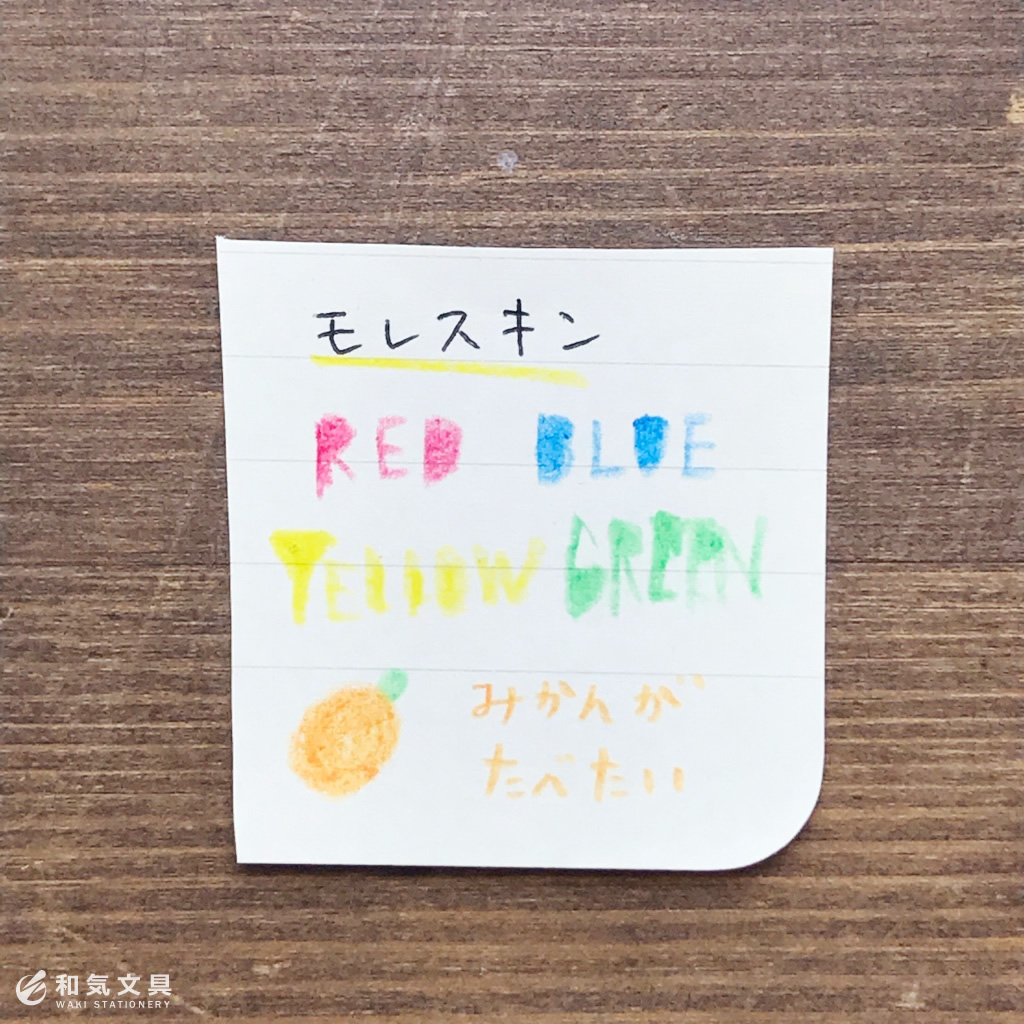 モレスキン
RED BLUE
YELLOW GREEN
みかんが
たべたい
和気文具
WAKI STATIONERY